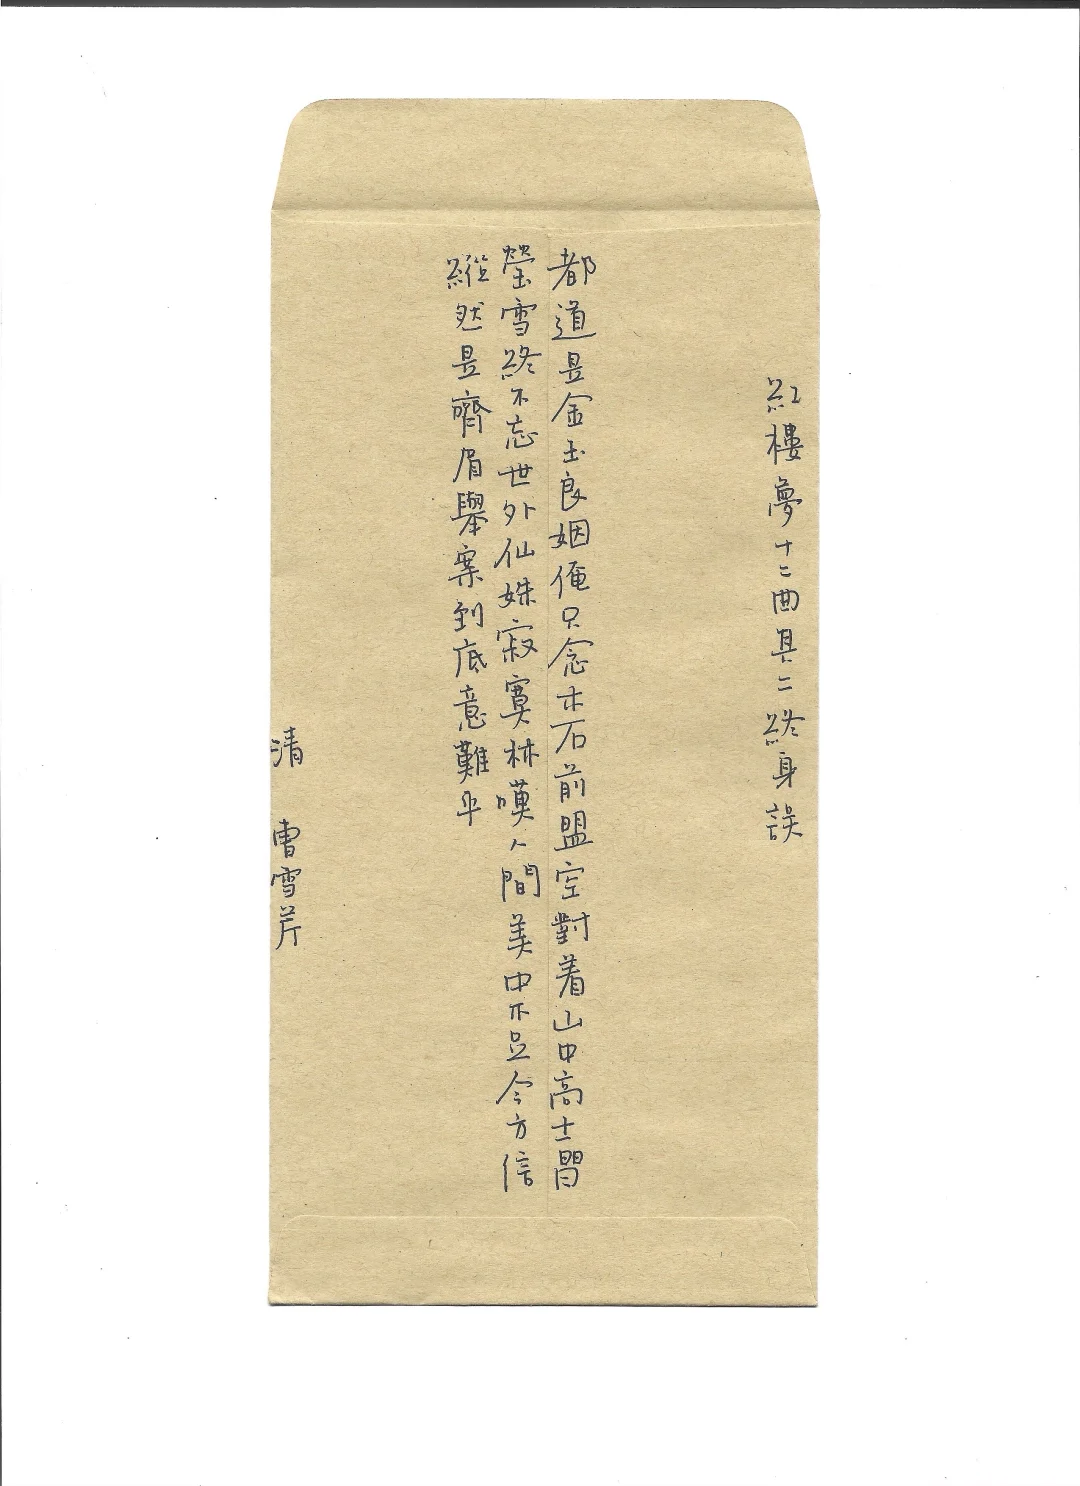 紅樓夢十二曲其二終身誤
都道是金玉良姻俺只念木石前盟空對着山中高士晶
瑩雪終不忘世外仙姝寂寞林嘆人間美中不足今方信
縱然是齊眉舉案到底意難平
清 曹雪芹